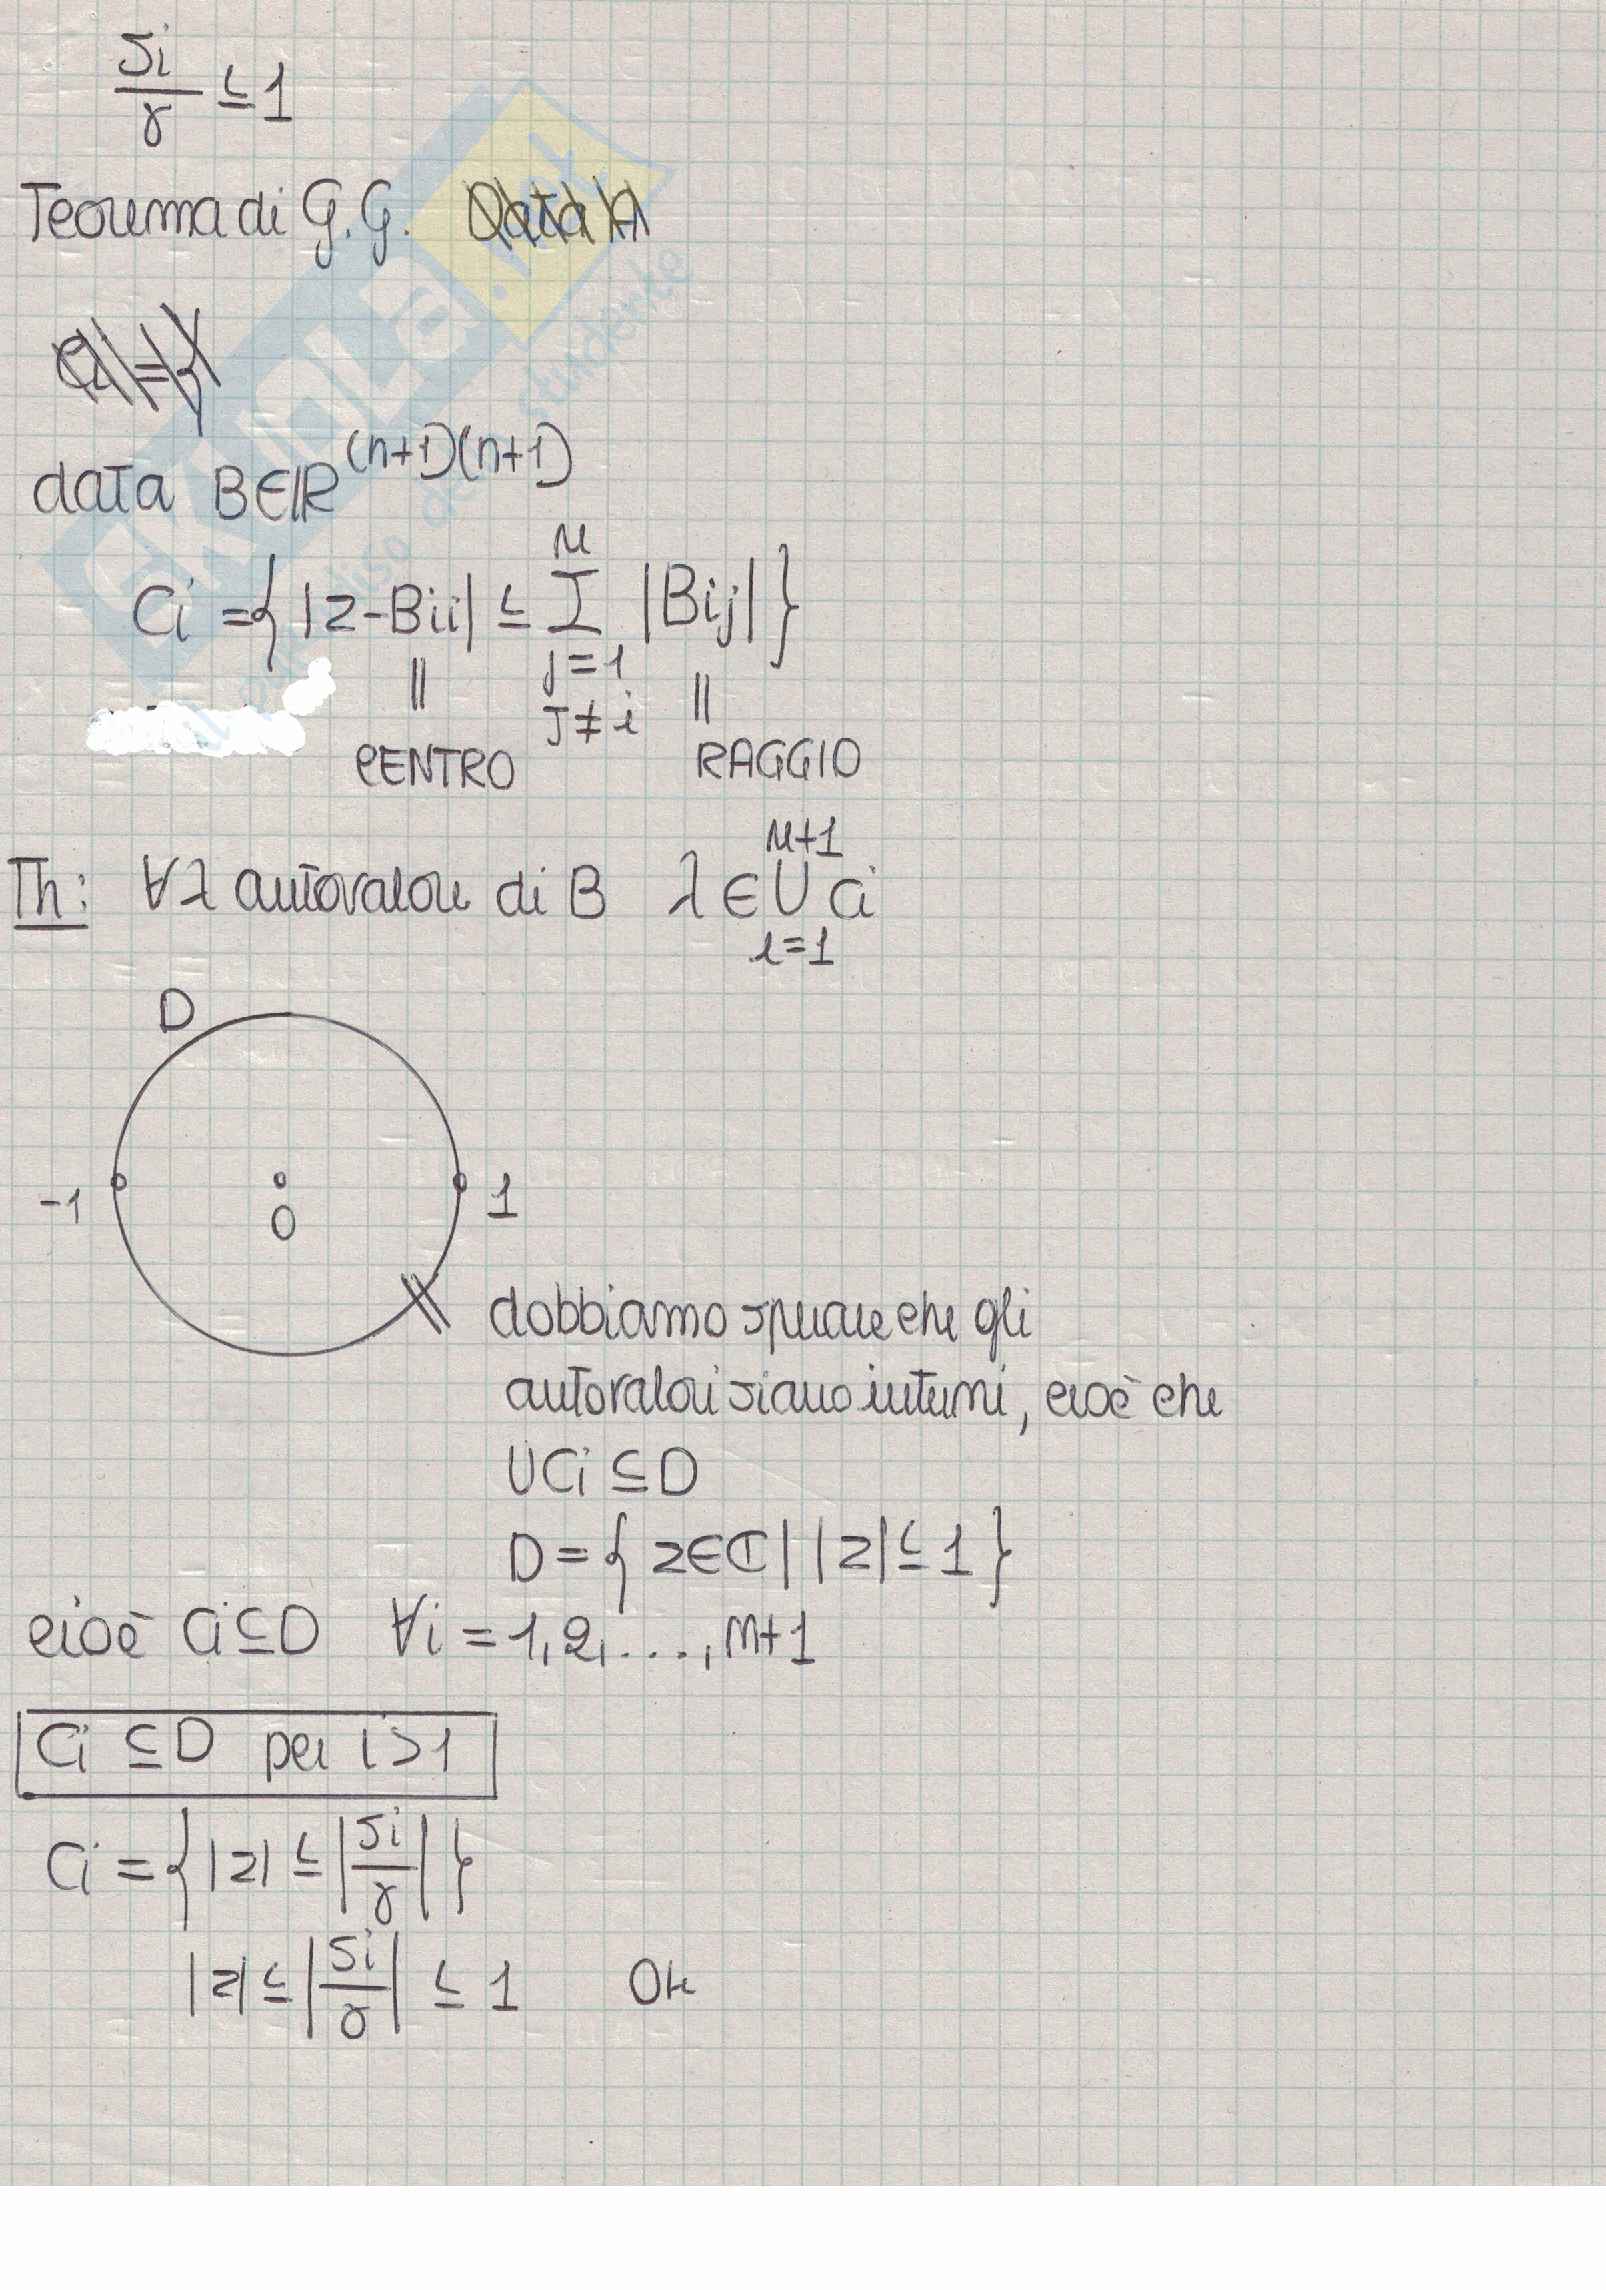 si/γ ≤ 1
Teorema di G.G. Data A
data B∈ℝ^(n+1)(n+1)
Ci = { |z-Bii| ≤ Σ_{j=1, J≠i}^{n} |Bij| }
|| ||
CENTRO RAGGIO
Th: ∀λ autovalore di B λ ∈ ∪_{i=1}^{n+1} Ci
D
-1 0 1
dobbiamo sperare che gli
autovalori siano interni, cioè che
∪Ci ⊆ D
D = { z∈ℂ | |z| ≤ 1 }
cioè Ci ⊆ D ∀i = 1,2,...,n+1
Ci ⊆ D per i>1
Ci = { |z| ≤ |si/γ| }
|z| ≤ |si/γ| ≤ 1 Ok